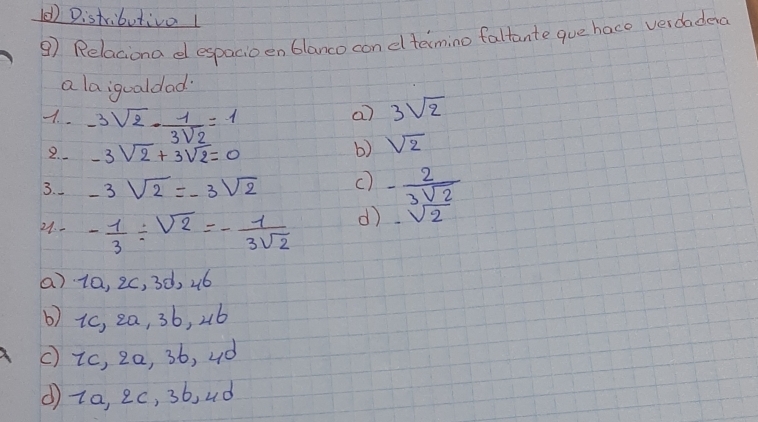 d) Distributiva 1
g) Relaciona el espacio en blanco con el término faltante que hace verdadera
a la igualdad.
1.- -3√2 · -1/3√2 = 1
a) 3√2
2.- -3√2 + 3√2 = 0
b) √2
3.- -3 √2 = -3√2
c) -2/3√2
4.- -1/3 ÷ √2 = -1/3√2
d) -√2
a) 1a, 2c, 3d, 4b
b) 1c, 2a, 3b, 4b
c) 1c, 2a, 3b, 4d
d) 1a, 2c, 3b, 4d